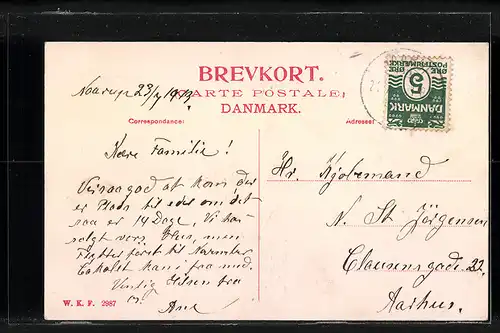 BREVKORT.
CARTE POSTALE;
DANMARK.
Correspondance:
Adresse:
5
ØRE
POSTFRIMÆRKE
ØRE
DANMARK
Kære Familie!
Versaagod at kom der
er Plads til eder om det
saa er 14 Dage, Vi har
solgt vers Hus, men
Flytter først til
kan i faa med.
Venlig Hilsen fra
Hr. Kjøbemand
N. St. Jörgensen
Clausensgade 22.
Aarhus.
W. K. F. 2987